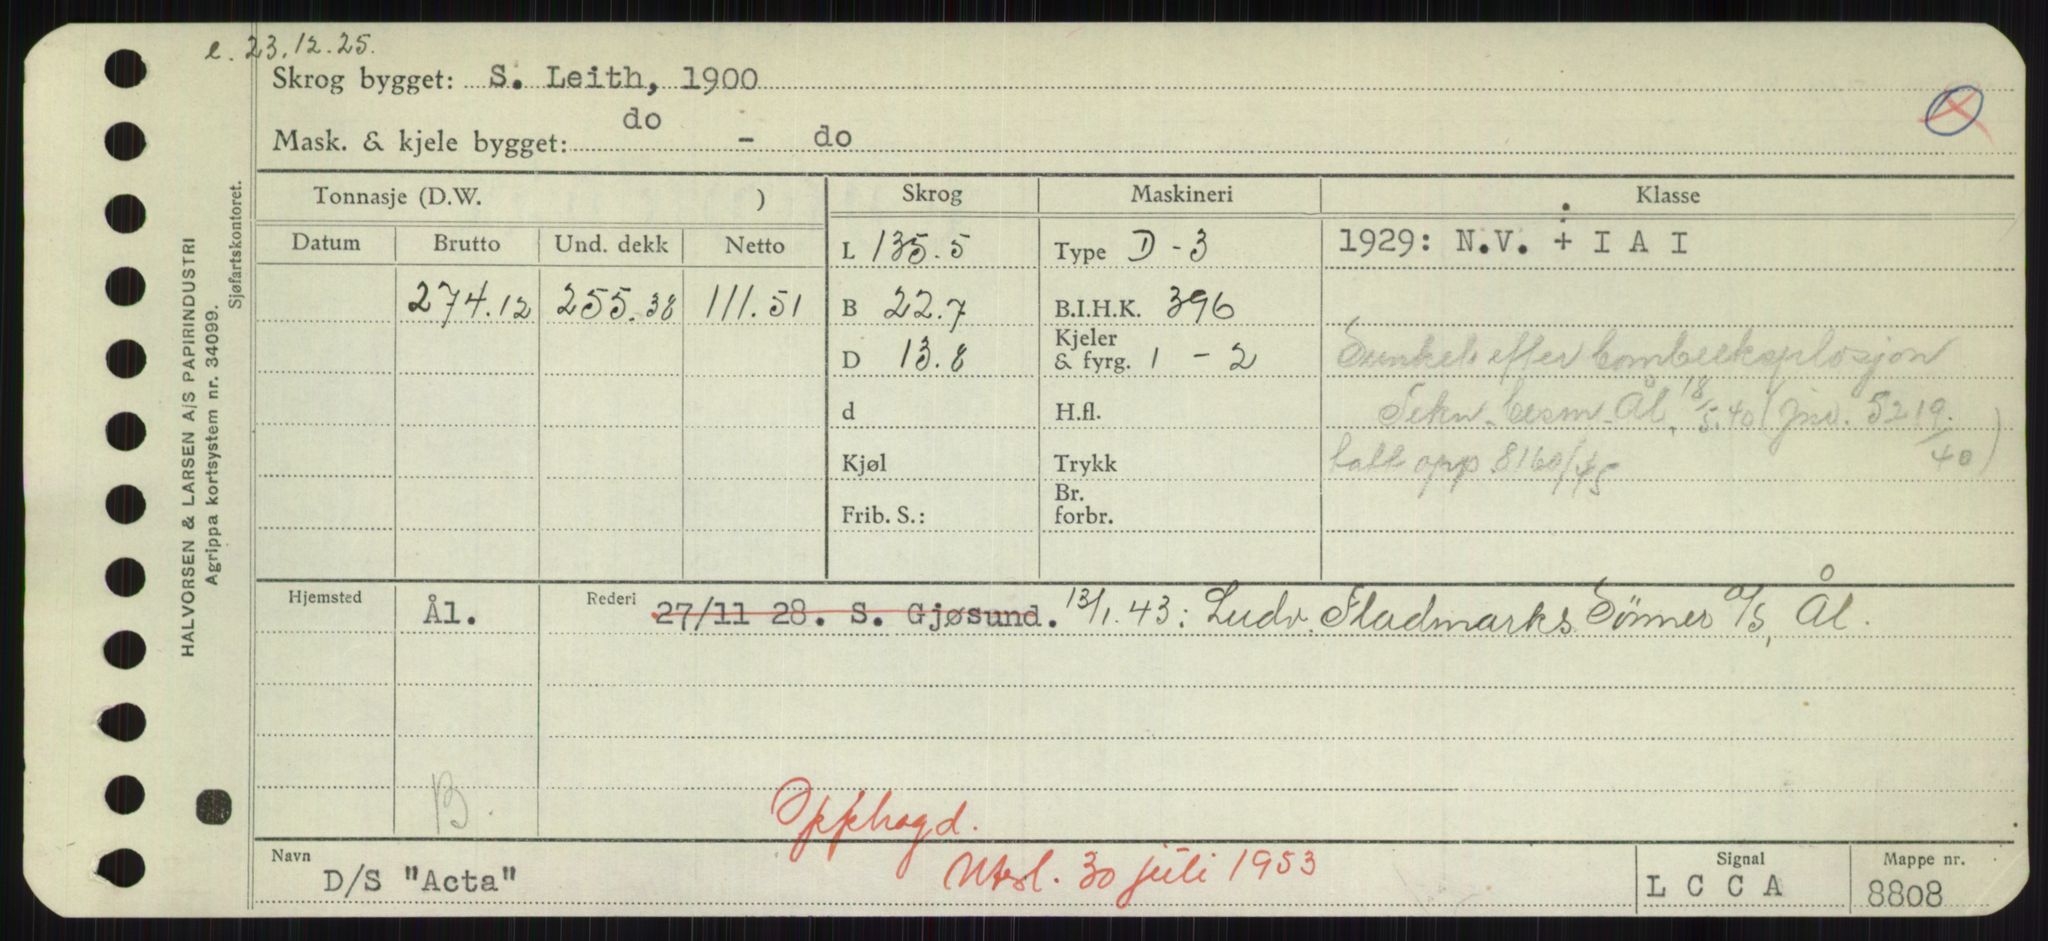 e. 23.12.25.
Skrog bygget: S. Leith, 1900
Mask. & kjele bygget: do - do
Tonnasje (D.W. )
Skrog
Maskineri
Klasse
Datum Brutto Und. dekk Netto
L 135.5
Type D - 3
1929: N.V. + I A I
274.12 255.38 111.51
B 22.7
B.I.H.K. 396
D 13.8
Kjeler
& fyrg. 1 - 2
Sunket efter bombeeksplosjon
d
H.fl.
Tekn. besm. Ål, 18/5.40 (Jnv. 5219/40)
Kjøl
Trykk
tatt opp 8160/45
Frib. S.:
Br.
forbr.
Hjemsted
Ål.
Rederi
27/11 28. S. Gjøsund. 13/1.43: Ludv. Fladmarks Sønner A/S, Ål.
B.
Opphogd.
Utsl. 30 juli 1953
Navn
D/S "Acta"
Signal
L C C A
Mappe nr.
8808
HALVORSEN & LARSEN A/S PAPIRINDUSTRI
Agrippa kortsystem nr. 34099.
Sjøfartskontoret.